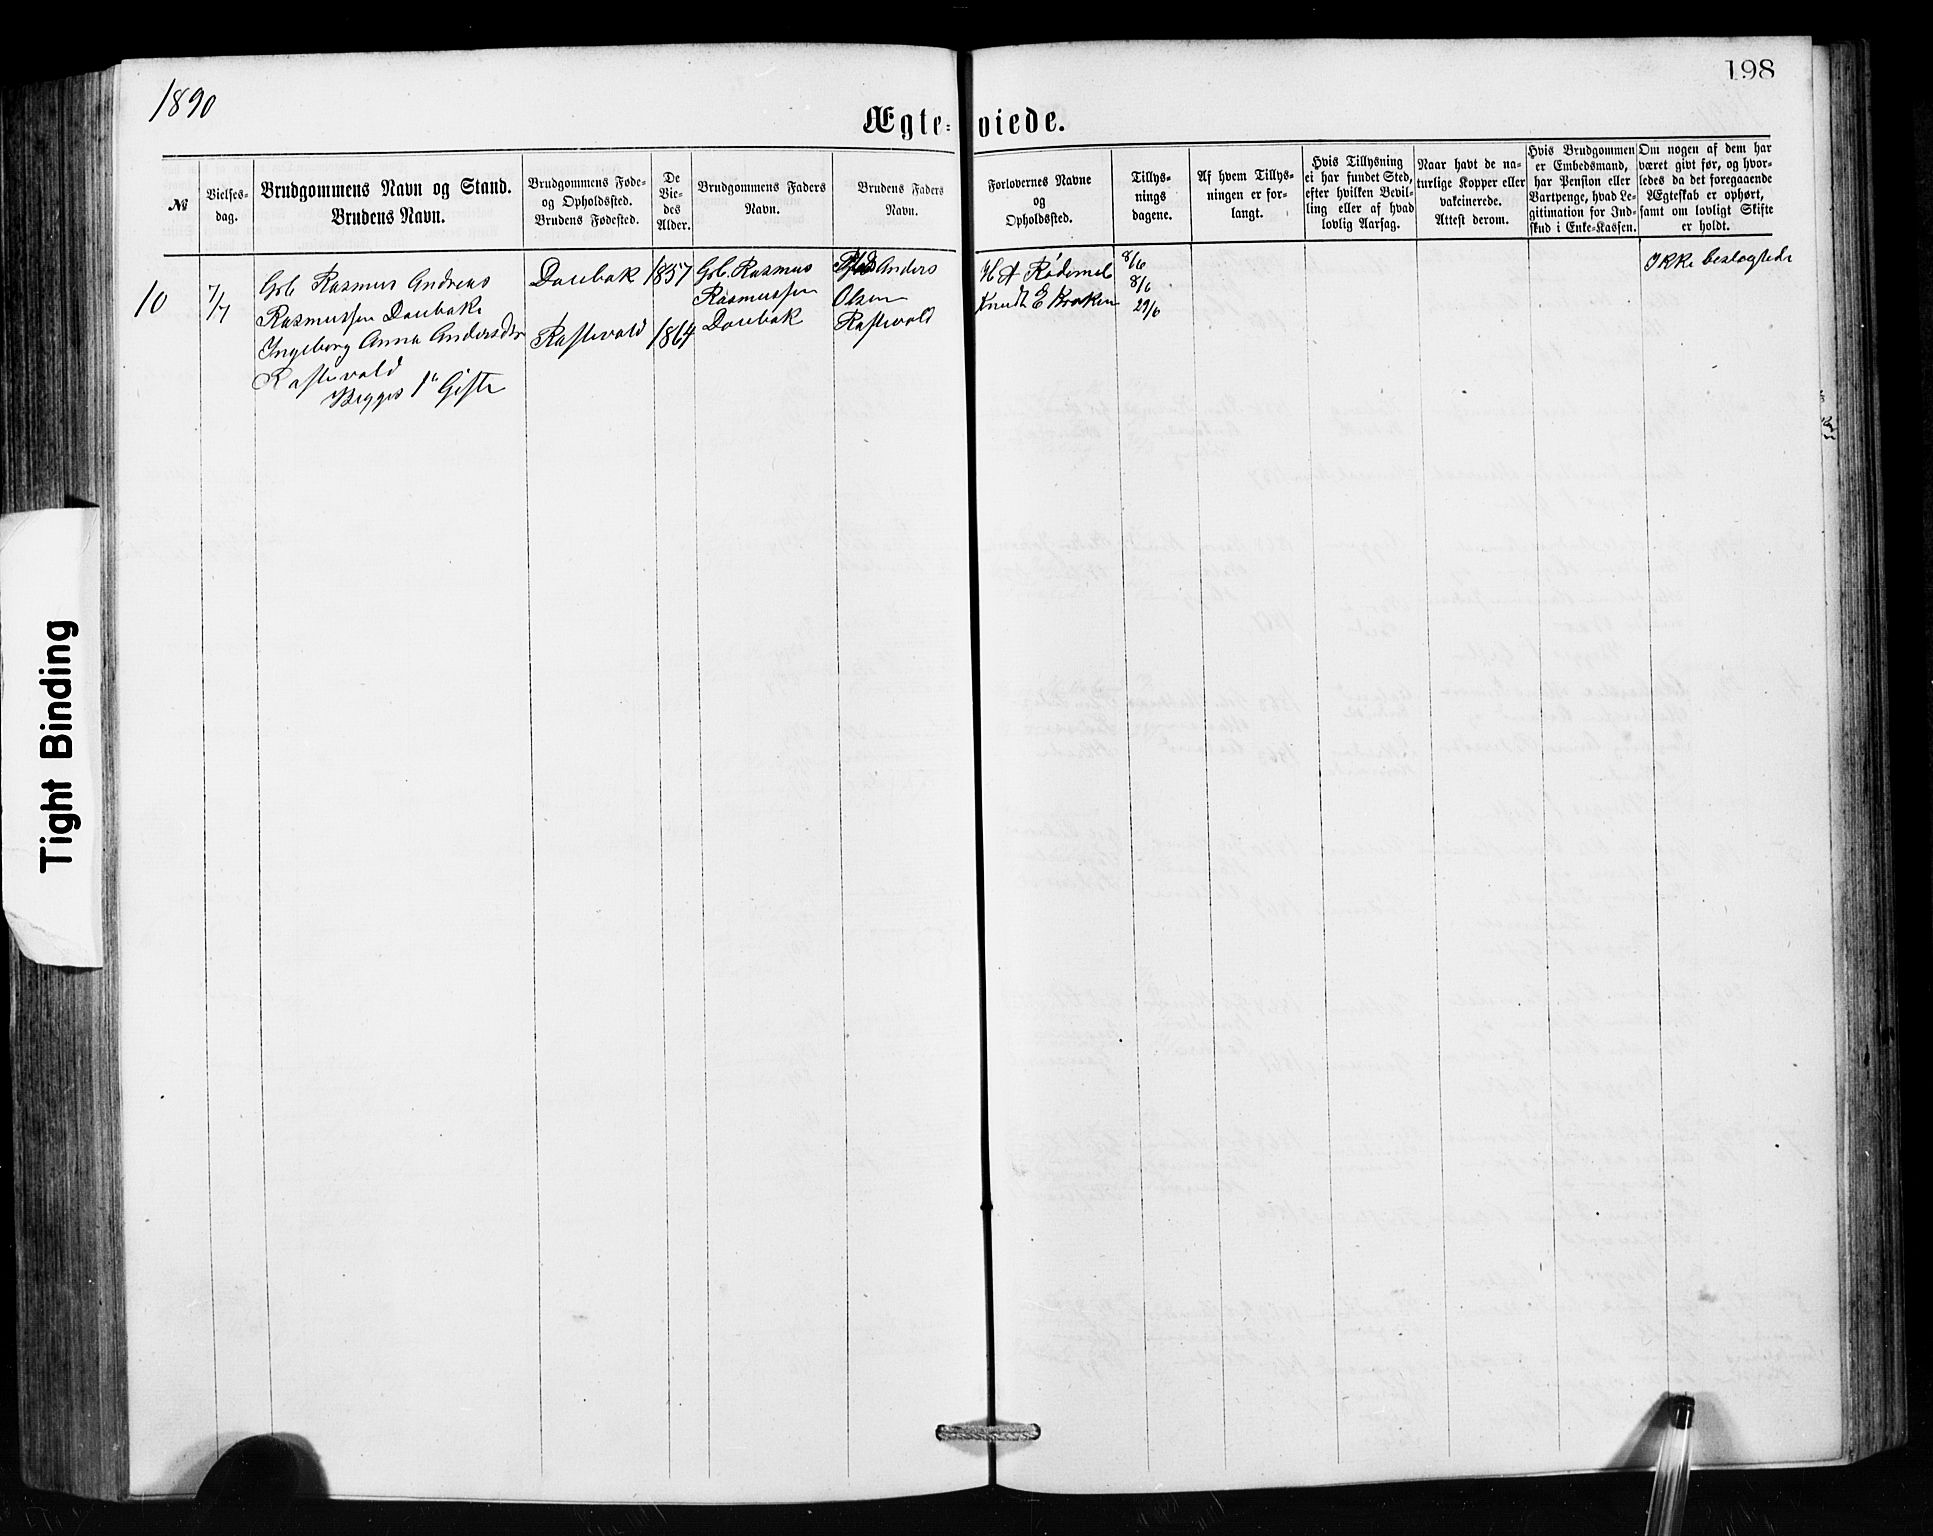 1890
198
Ægte-viede.
№
Vielses-
dag.
Brudgommens Navn og Stand.
Brudens Navn.
Brudgommens Føde-
og Opholdssted.
Brudens Fødested.
De
Vie-
des
Alder.
Brudgommens Faders
Navn.
Brudens Faders
Navn.
Forlovernes Navne
og
Opholdssted.
Tillys-
nings
dagene.
Af hvem Tillys-
ningen er for-
langt.
Hvis Tillysning
ei har fundet Sted,
efter hvilken Bevil-
ling eller af hvad
lovlig Aarsag.
Naar havt de na-
turlige Kopper eller
vakcinerede.
Attest derom.
Hvis Brudgommen
er Embedsmand,
har Pension eller
Vartpenge, hvad Le-
gitimation for Ind-
skud i Enke-Kassen.
Om nogen af dem har
været givt før, og hvor-
ledes da det foregaaende
Ægteskab er ophørt,
samt om lovligt Skifte
er holdt.
10
7/7
Gbr Rasmus Andreas
Rasmussen Davbak
Ingeborg Anna Andersdtr
Rastevold
Begges 1ste Gifte
Davbak
Rastevold
1857
1864
Gbr. Rasmus
Rasmussen
Davbak
Anders
Olsen
Rastevold
H A Rødsmel
Knudt E Kroken
8/6
8/6
29/6
Ikke beslægtede
Tight Binding